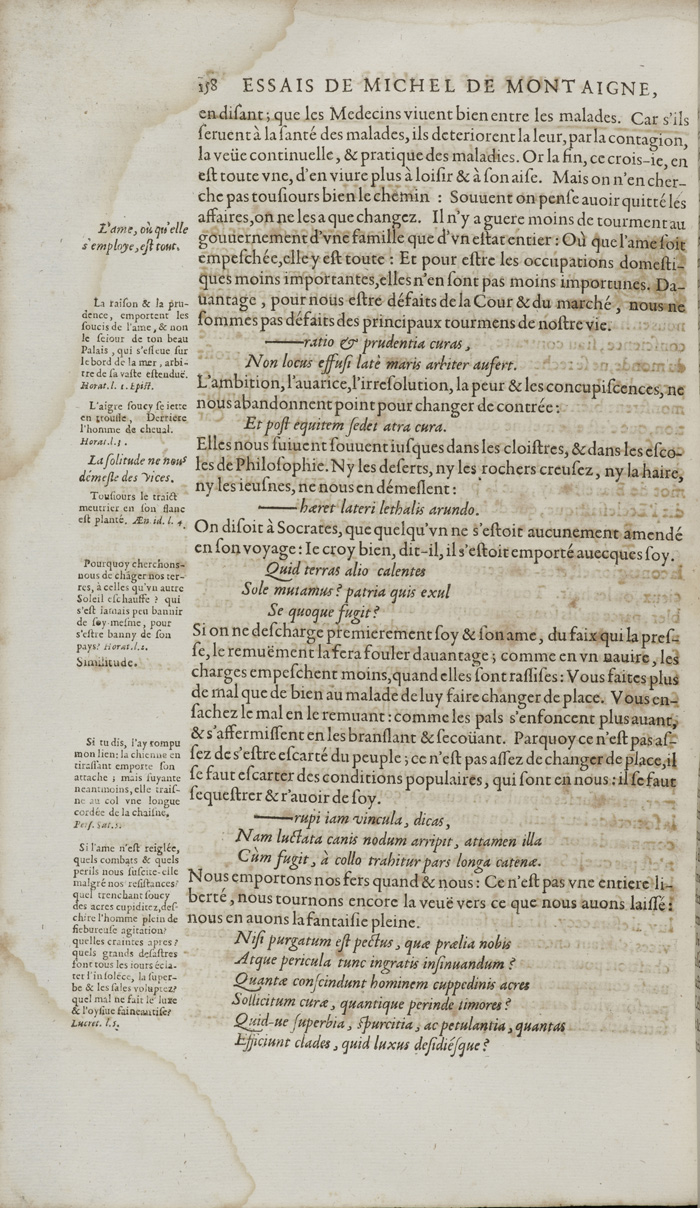 158 ESSAIS DE MICHEL DE MONTAIGNE,
en disant; que les Medecins viuent bien entre les malades. Car s'ils
seruent à la santé des malades, ils deteriorent la leur, par la contagion,
la veüe continuelle, & pratique des maladies. Or la fin, ce crois-ie, en
est toute vne, d'en viure plus à loisir & à son aise. Mais on n'en cher-
che pas tousiours bien le chemin : Souuent on pense auoir quitté les
affaires, on ne les a que changez. Il n'y a guere moins de tourment au
gouuernement d'vne famille que d'vn estat entier : Où que l'ame soit
empeschée, elle y est toute : Et pour estre les occupations domesti-
ques moins importantes, elles n'en sont pas moins importunes. Da-
uantage, pour nous estre défaits de la Cour & du marché, nous ne
sommes pas défaits des principaux tourmens de nostre vie.
——ratio & prudentia curas,
Non locus effusi latè maris arbiter aufert.
L'ambition, l'auarice, l'irresolution, la peur & les concupiscences, ne
nous abandonnent point pour changer de contrée:
Et post equitem sedet atra cura.
Elles nous suiuent souuent iusques dans les cloistres, & dans les esco-
les de Philosophie. Ny les deserts, ny les rochers creusez, ny la haire,
ny les ieusnes, ne nous en démeslent :
——hæret lateri lethalis arundo.
On disoit à Socrates, que quelqu'vn ne s'estoit aucunement amendé
en son voyage : Ie croy bien, dit-il, il s'estoit emporté auecques soy.
Quid terras alio calentes
Sole mutamus? patria quis exul
Se quoque fugit?
Si on ne descharge premierement soy & son ame, du faix qui la pres-
se, le remuëment la fera fouler dauantage; comme en vn nauire, les
charges empeschent moins, quand elles sont rassises : Vous faites plus
de mal que de bien au malade de luy faire changer de place. Vous en-
sachez le mal en le remuant : comme les pals s'enfoncent plus auant,
& s'affermissent en les branslant & secoüant. Parquoy ce n'est pas as-
sez de s'estre escarté du peuple; ce n'est pas assez de changer de place, il
se faut escarter des conditions populaires, qui sont en nous : il se faut
sequestrer & r'auoir de soy.
——rupi iam vincula, dicas,
Nam luctata canis nodum arripit, attamen illa
Cùm fugit, à collo trahitur pars longa catenæ.
Nous emportons nos fers quand & nous : Ce n'est pas vne entiere li-
berté, nous tournons encore la veuë vers ce que nous auons laissé :
nous en auons la fantaisie pleine.
Nisi purgatum est pectus, quæ prælia nobis
Atque pericula tunc ingratis insinuandum?
Quantæ conscindunt hominem cuppedinis acres
Sollicitum curæ, quantique perinde timores?
Quid-ue superbia, spurcitia, ac petulantia, quantas
Efficiunt clades, quid luxus desidiésque?
L'ame, où qu'elle
s'employe, est tout.
La raison & la pru-
dence, emportent les
soucis de l'ame, & non
le seiour de ton beau
Palais, qui s'esleue sur
le bord de la mer, arbi-
tre de sa vaste estenduë.
Horat. l. 1. Epist.
L'aigre soucy se iette
en trousse, Derriere
l'homme de cheual.
Horat. l. 3.
La solitude ne nous
démesle des vices.
Tousiours le traict
meurtrier en son flanc
est planté. Æneid. l. 4.
Pourquoy cherchons-
nous de chãger nos ter-
res, à celles qu'vn autre
Soleil eschauffe? qui
s'est iamais peu bannir
de soy-mesme, pour
s'estre banny de son
pays? Horat. l. 2.
Similitude.
Si tu dis, l'ay rompu
mon lien: la chienne en
tirassant emporte son
attache; mais fuyante
neantmoins, elle trais-
ne au col vne longue
cordée de la chaisne.
Pers. Sat. 5.
Si l'ame n'est reiglée,
quels combats & quels
perils nous suscite-elle
malgré nos resistances?
quel trenchant soucy
des acres cupiditez, des-
chire l'homme plein de
fiebureuse agitation?
quelles craintes apres?
quels grands desastres
sont tous les iours écla-
ter l'insoléce, la super-
be & les sales voluptez?
quel mal ne fait le luxe
& l'oysiue faineantise?
Lucret. l. 5.